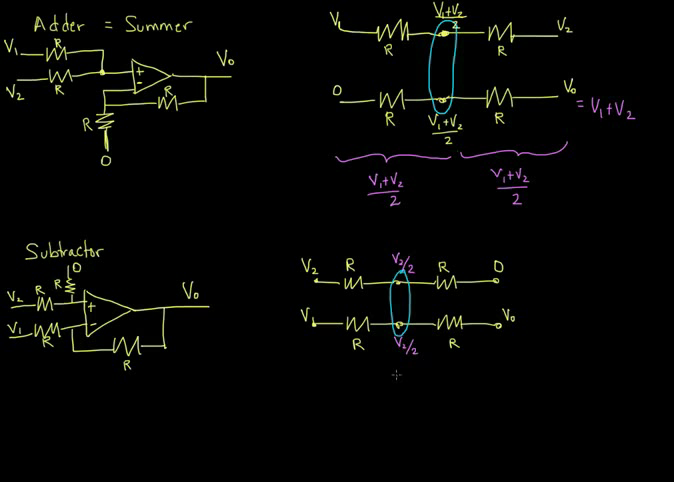 Adder = Summer
V1
R
V2
R
+
-
V0
R
R
0
V1
R
V1+V2/2
R
V2
0
R
V1+V2/2
R
V0
= V1+V2
V1+V2/2
V1+V2/2
Subtractor
0
R
V2
R
+
V1
R
-
V0
R
V2
R
V2/2
R
0
V1
R
V2/2
R
V0